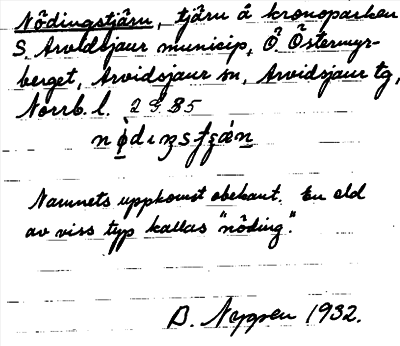 Nödingstjärn, tjärn å kronoparken
S. Arvidsjaur municip, Ö Östermyr-
berget, Arvidsjaur sn, Arvidsjaur tg,
Norrb. l. 2985
Namnets uppkomst obekant. En eld
av viss typ kallas "nöding".
B. Nygren 1932.